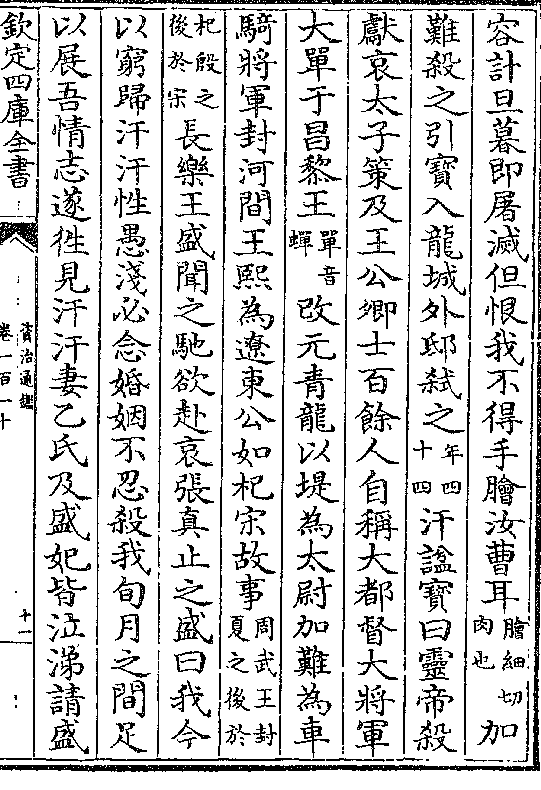 容計旦暮即屠滅但恨我不得手膾汝曹耳膾細切肉也加
難殺之引寶入龍城外邸弑之年四十四汗謚寶曰靈帝殺
獻哀太子策及王公卿士百餘人自稱大都督大將軍
大單于昌黎王單音蟬改元青龍以堤為太尉加難為車
騎將軍封河間王熙為遼東公如杞宋故事周武王封夏之後於
杞殷之後於宋長樂王盛聞之馳欲赴哀張真止之盛曰我今
以窮歸汗汗性愚淺必念婚姻不忍殺我旬月之間足
以展吾情志遂徃見汗汗妻乙氏及盛妃皆泣涕請盛
欽定四庫全書
資治通鑑
卷一百一十
十一